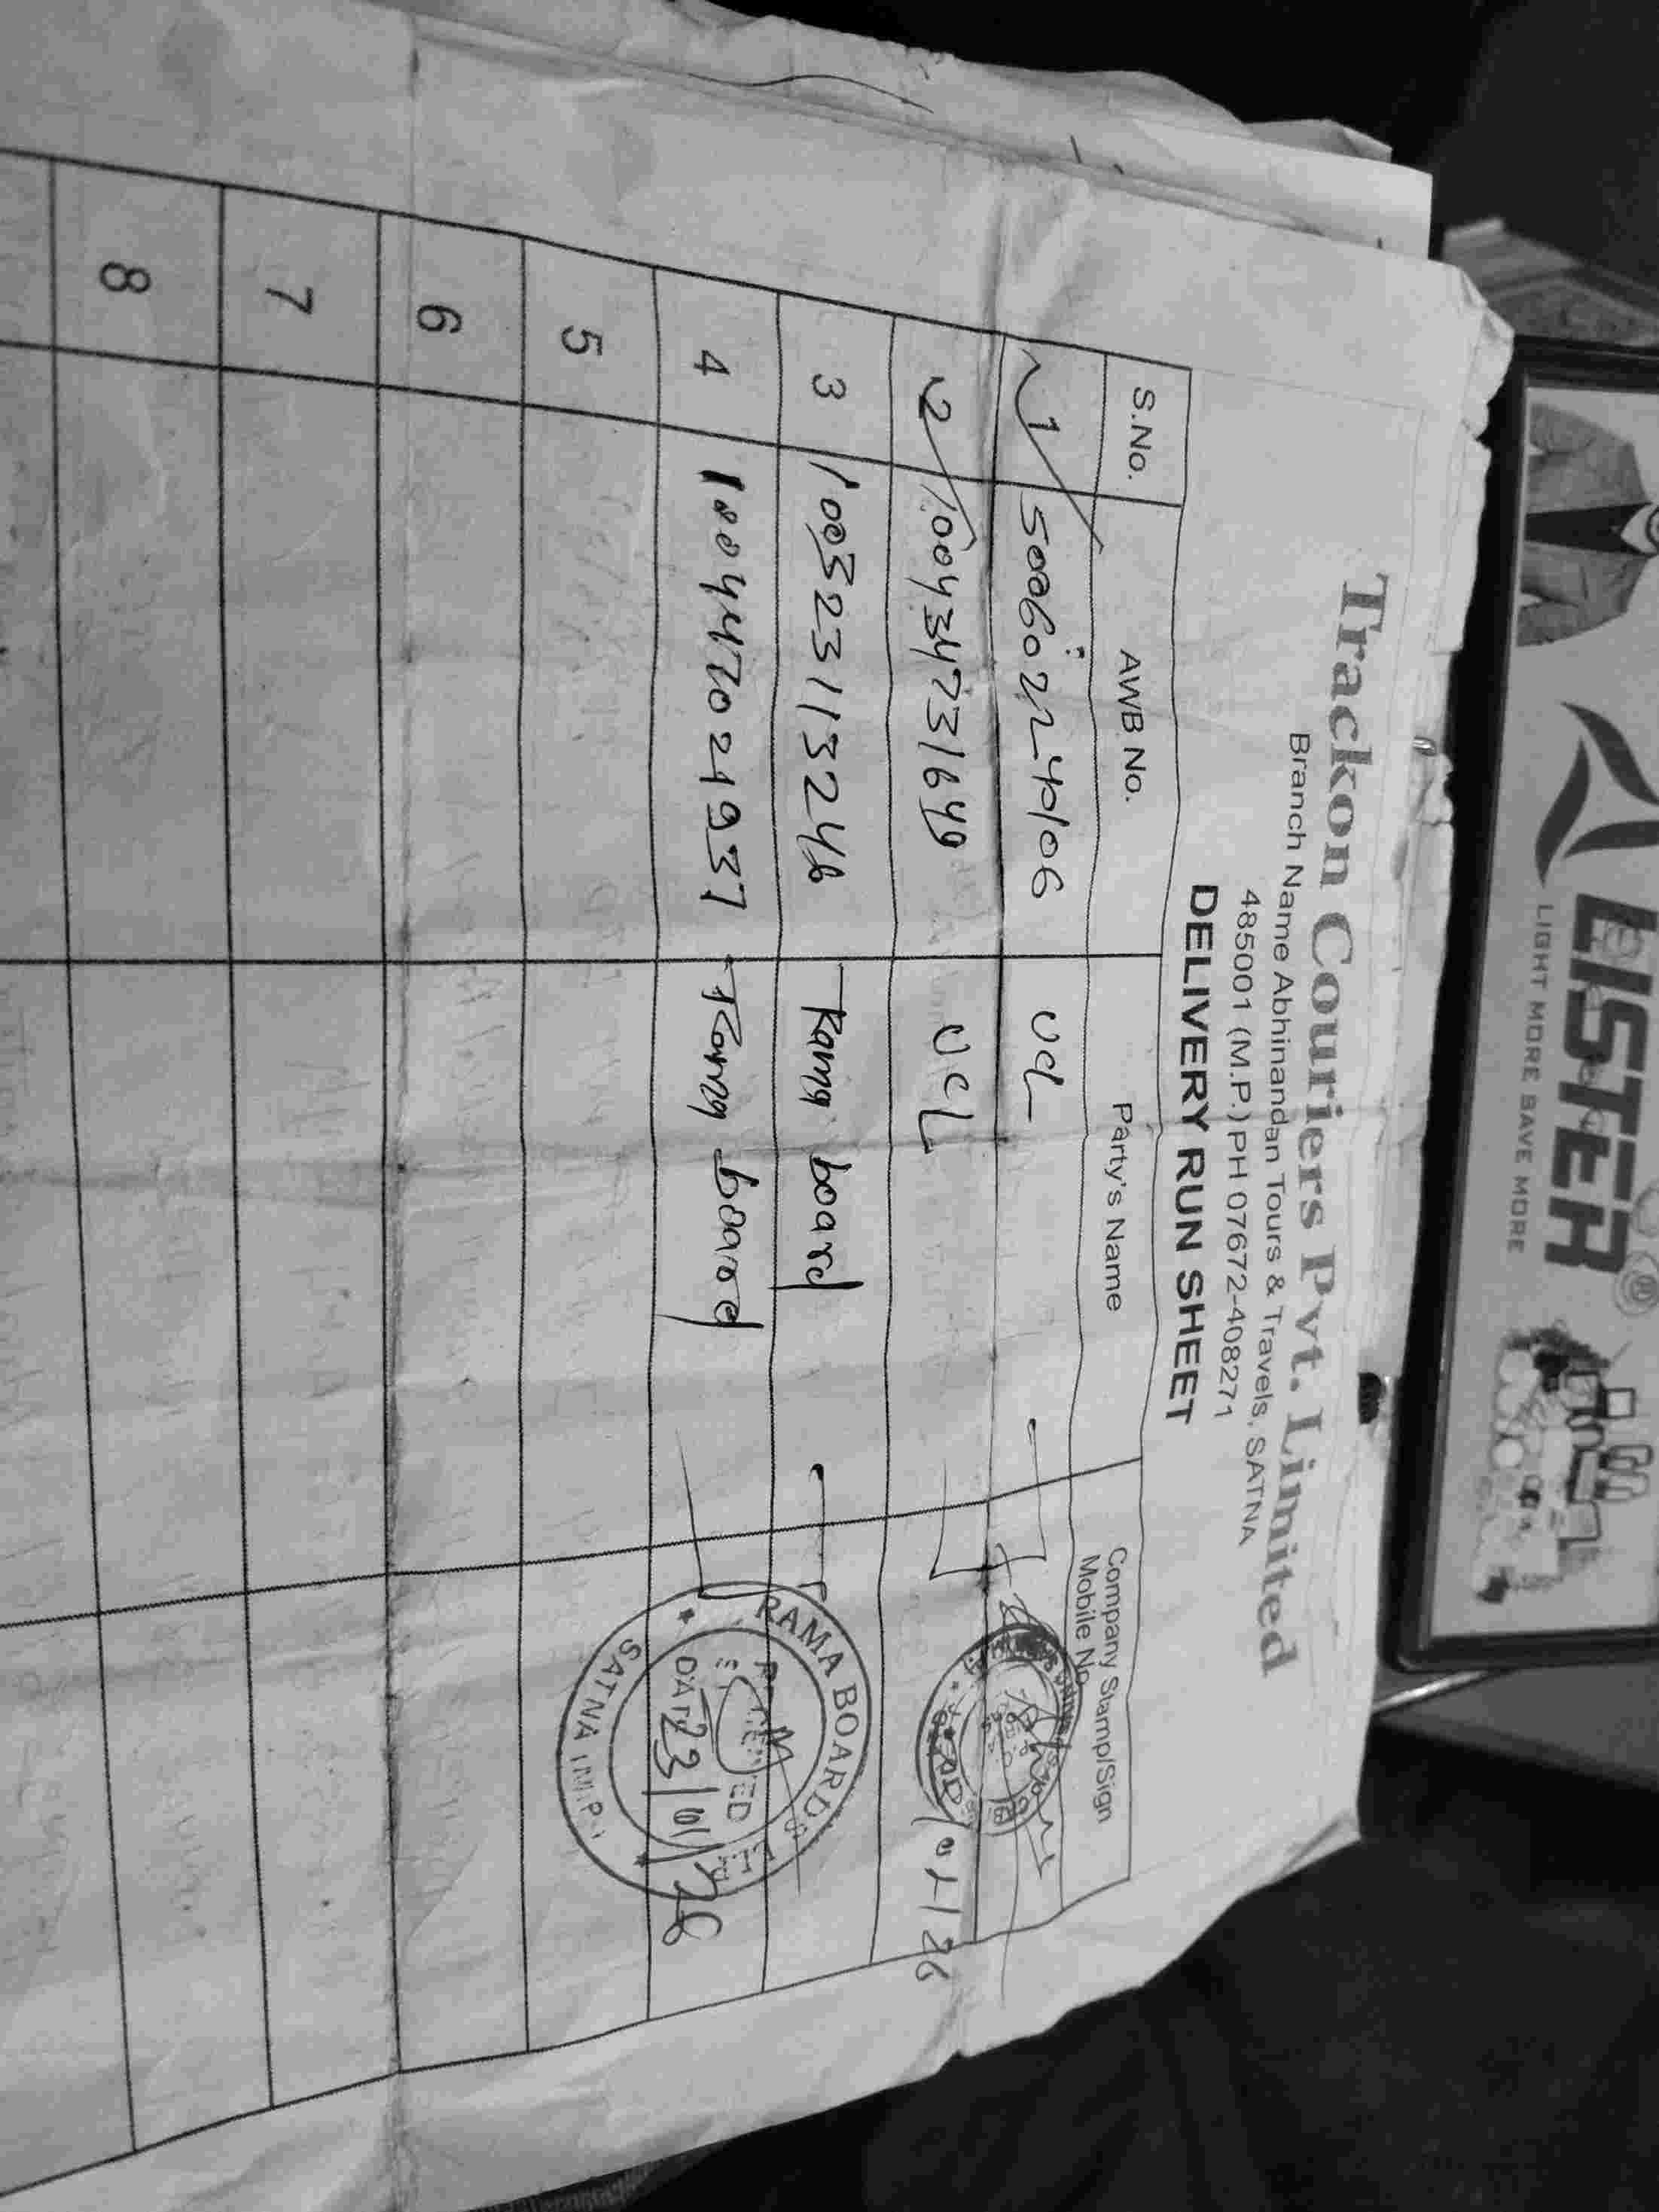 Trackon Couriers Pvt. Limited
Branch Name Abhinandan Tours & Travels, SATNA
485001 (M.P.) PH 07672-408271
DELIVERY RUN SHEET
S.No. AWB No. Party's Name Company Stamp/Sign Mobile No.
1 500602240106 UCL
2 100434731649 UCL
01/26
3 100323113246 Rama board
4 100447021937 Rama board
RAMA BOARDS
RECEIVED
DATE 23/01/26
SATNA (M.P.)
5
6
7
8
LISTER
LIGHT MORE SAVE MORE